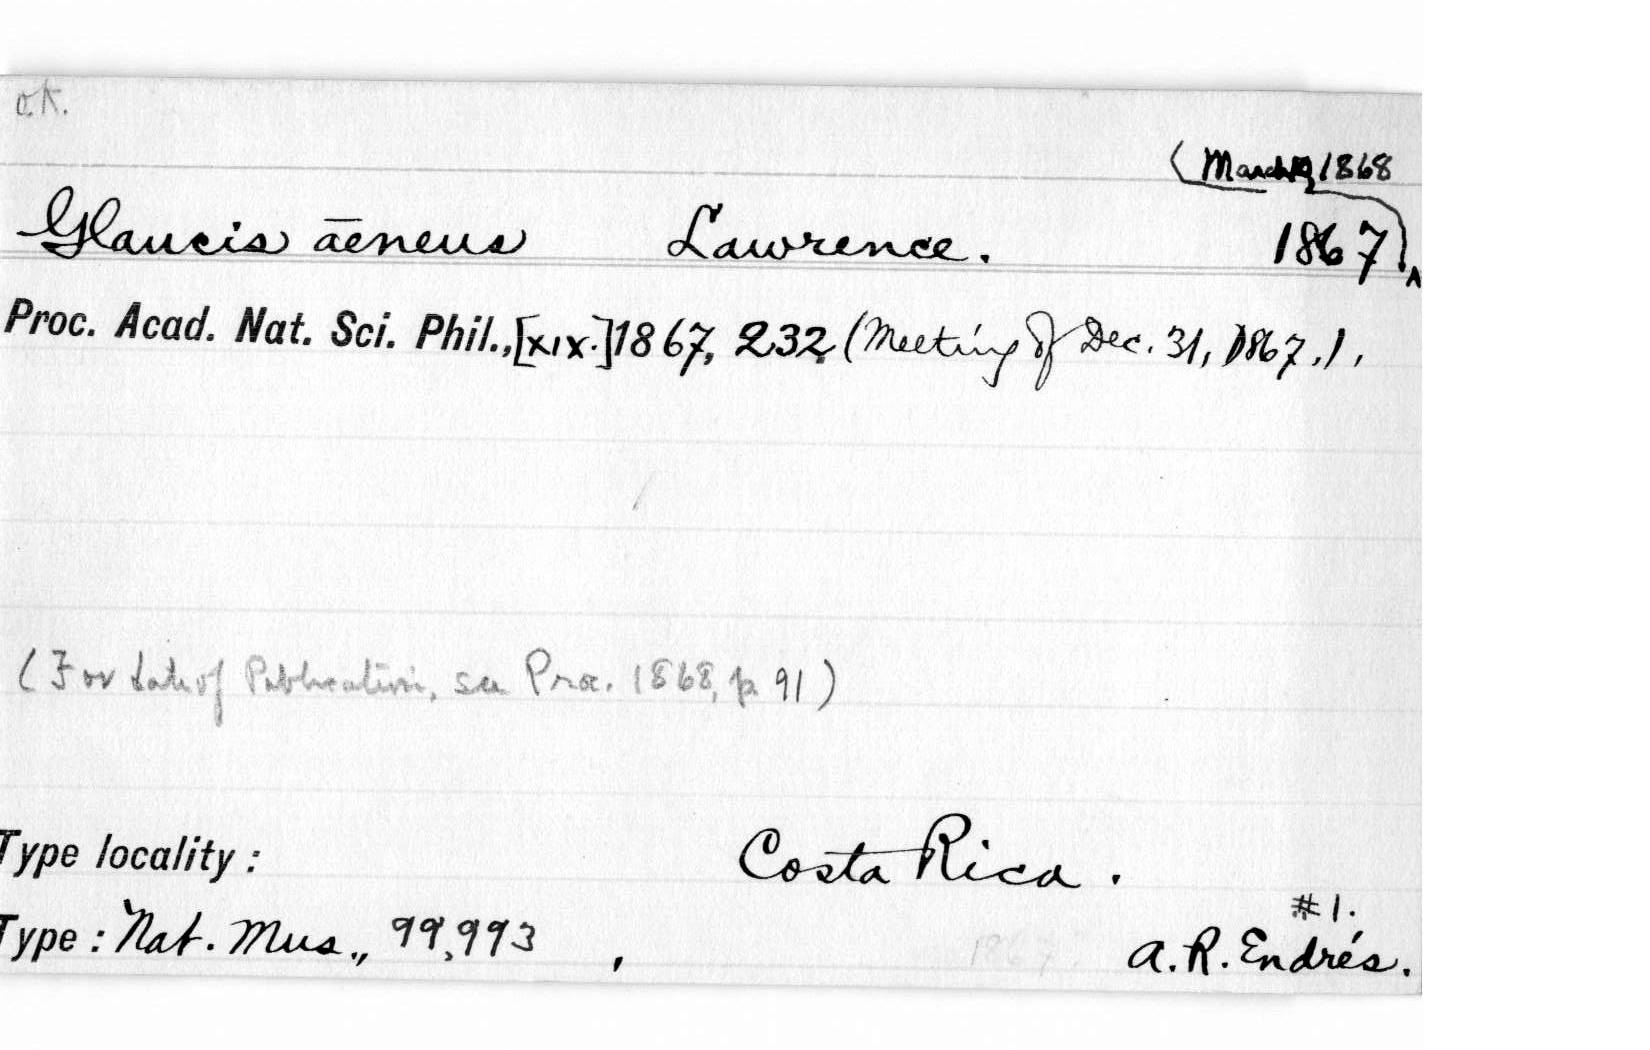 o.k.
(March, 1868
Glaucis āeneus Lawrence. 1867).
Proc. Acad. Nat. Sci. Phil., [xix.] 1867, 232, (Meeting of Dec. 31, 1867.),
(For date of Publication, see Proc. 1868, p 91)
Type locality: Costa Rica.
#1.
Type: Nat. Mus., 99,993, 1867. A. R. Endrés.